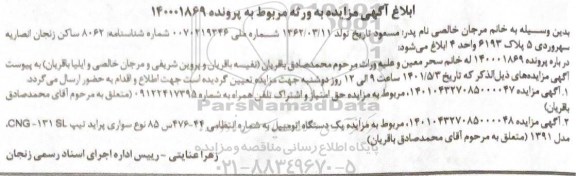 ابلاغ آگهی مزایده به ورثه مربوط به پرونده ۱۴۰۰۰۱۸۶۹
بدین وسیله به خانم مرجان خالصی نام پدر: مسعود تاریخ تولد ۱۳۶۲/۰۳/۱۱ شماره ملی ۰۰۷۰۲۱۹۳۴۶ شماره شناسنامه: ۸۰۶۲ ساکن زنجان انصاریه
سهروردی ۵ پلاک ۶۱۹۳ واحد ۴ ابلاغ می‌شود:
در باره پرونده ۱۴۰۰۰۱۸۶۹ له خانم سحر معین و علیه وراث مرحوم محمدصادق باقریان (نفیسه باقریان و پروین شریفی و مرجان خالصی و ایلیا باقریان) به پیوست
آگهی مزایده‌های ذیل‌الذکر که تاریخ ۱۴۰۱/۵/۳ ساعت ۹ الی ۱۲ روز دوشنبه جهت مزایده تعیین گردیده است جهت اطلاع و اقدام به حضور ارسال می‌گردد.
۱. آگهی مزایده ۱۴۰۱۰۴۳۲۷۰۸۵۰۰۰۰۴۷، مربوط به مزایده حق امتیاز و اشتراک تلفن همراه به شماره ۰۹۱۲۲۴۱۷۳۹۵ (متعلق به مرحوم آقای محمدصادق
باقریان)
۲. آگهی مزایده ۱۴۰۱۰۴۳۲۷۰۸۵۰۰۰۰۴۸، مربوط به مزایده یک دستگاه اتومبیل به شماره انتظامی ۴۴-۴۷۶س ۸۵ نوع سواری پراید تیپ CNG-۱۳۱ SL،
مدل ۱۳۹۱ (متعلق به مرحوم آقای محمدصادق باقریان)
زهرا عنایتی - رییس اداره اجرای اسناد رسمی زنجان
ParsNamadData
پایگاه اطلاع رسانی مناقصه و مزایده
۰۲۱-۸۸۳۴۹۶۷۰-۵